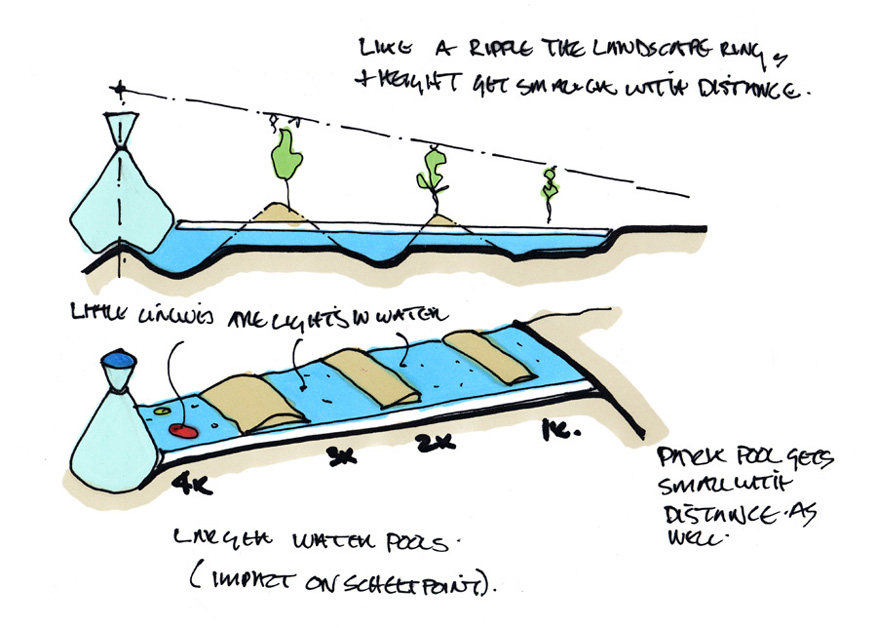 LIKE A RIPPLE THE LANDSCAPE RING,
+ HEIGHT GET SMALLER WITH DISTANCE.
LITTLE CIRCLES ARE LIGHTS IN WATER
4X
3X
2X
1X.
PARK POOL GETS
SMALL WITH
DISTANCE. AS
WELL.
LARGER WATER POOLS.
(IMPACT ON